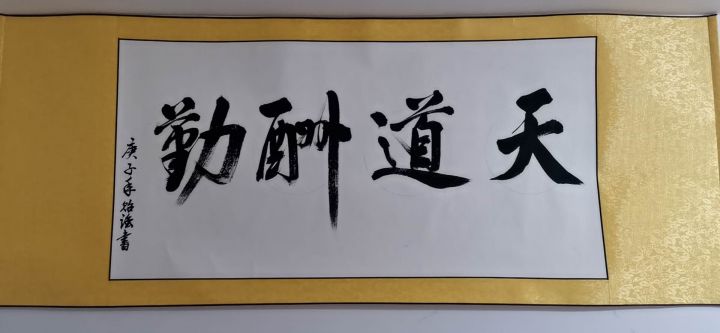 天道酬勤
庚子年 书